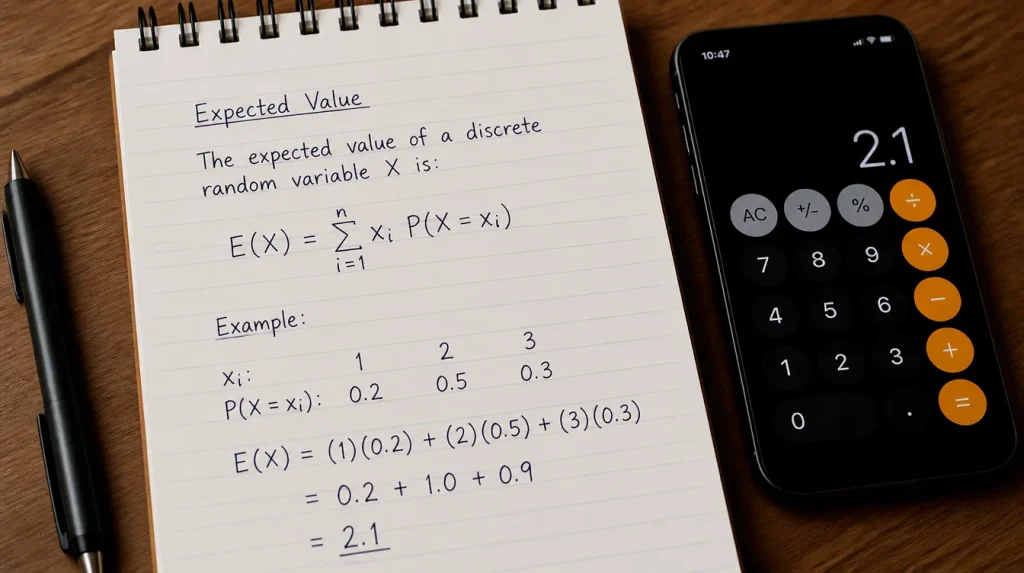 Expected Value
The expected value of a discrete
random variable X is:
E(X) = ∑ⁿᵢ₌₁ xᵢ P(X = xᵢ)
Example:
xᵢ: 1 2 3
P(X = xᵢ): 0.2 0.5 0.3
E(X) = (1)(0.2) + (2)(0.5) + (3)(0.3)
= 0.2 + 1.0 + 0.9
= 2.1
10:47
2.1
AC +/− % ÷
7 8 9 ×
4 5 6 −
1 2 3 +
0 . =